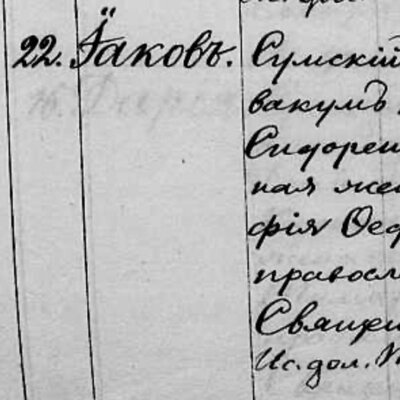 22. Їаковъ. Сумскій
вакумъ
Сидорен
ная же
фія Ѳео
правосл
Священ
Ис. дол.